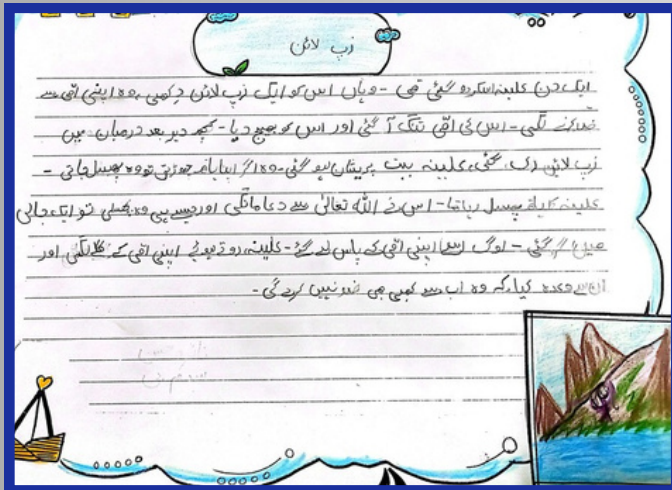 زپ لائن
ایک دن علینہ اسکردو گئی تھی - وہاں اس کو ایک زپ لائن دکھی، وہ اپنی امی سے
ضد کرنے لگی - اس کی امی تنگ آ گئی اور اس کو بھیج دیا - کچھ دیر بعد درمیان میں
زپ لائن رک گئی، علینہ بہت پریشان ہو گئی - وہ اگر اپنا ہاتھ چھوڑتی تو وہ پھسل جاتی -
علینہ کا ہاتھ پھسل رہا تھا - اس نے اللہ تعالیٰ سے دعا مانگی اور جیسے ہی وہ پھسلی تو ایک جالی
میں گر گئی - لوگ اسے اپنی امی کے پاس لے گئے - علینہ روتے ہوئے اپنی امی کے گلے لگی اور
ان سے وعدہ کیا، کہ وہ اب سے کبھی بھی ضد نہیں کرے گی -